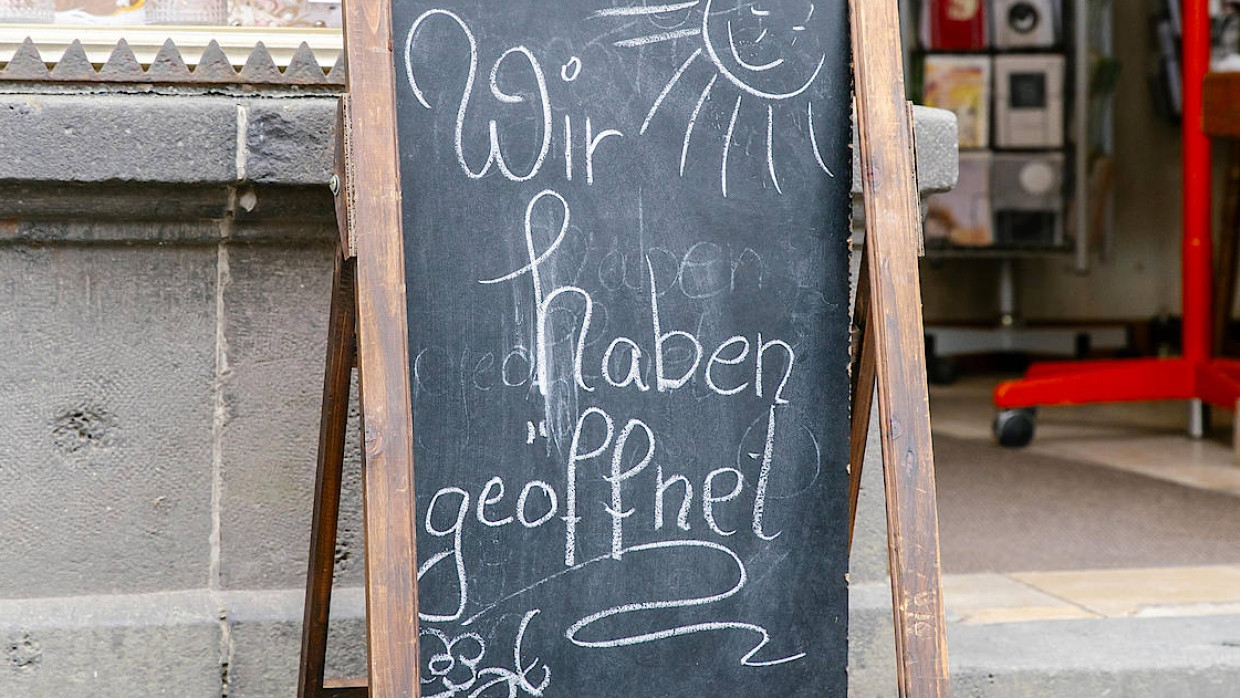 Wir
haben
geöffnet